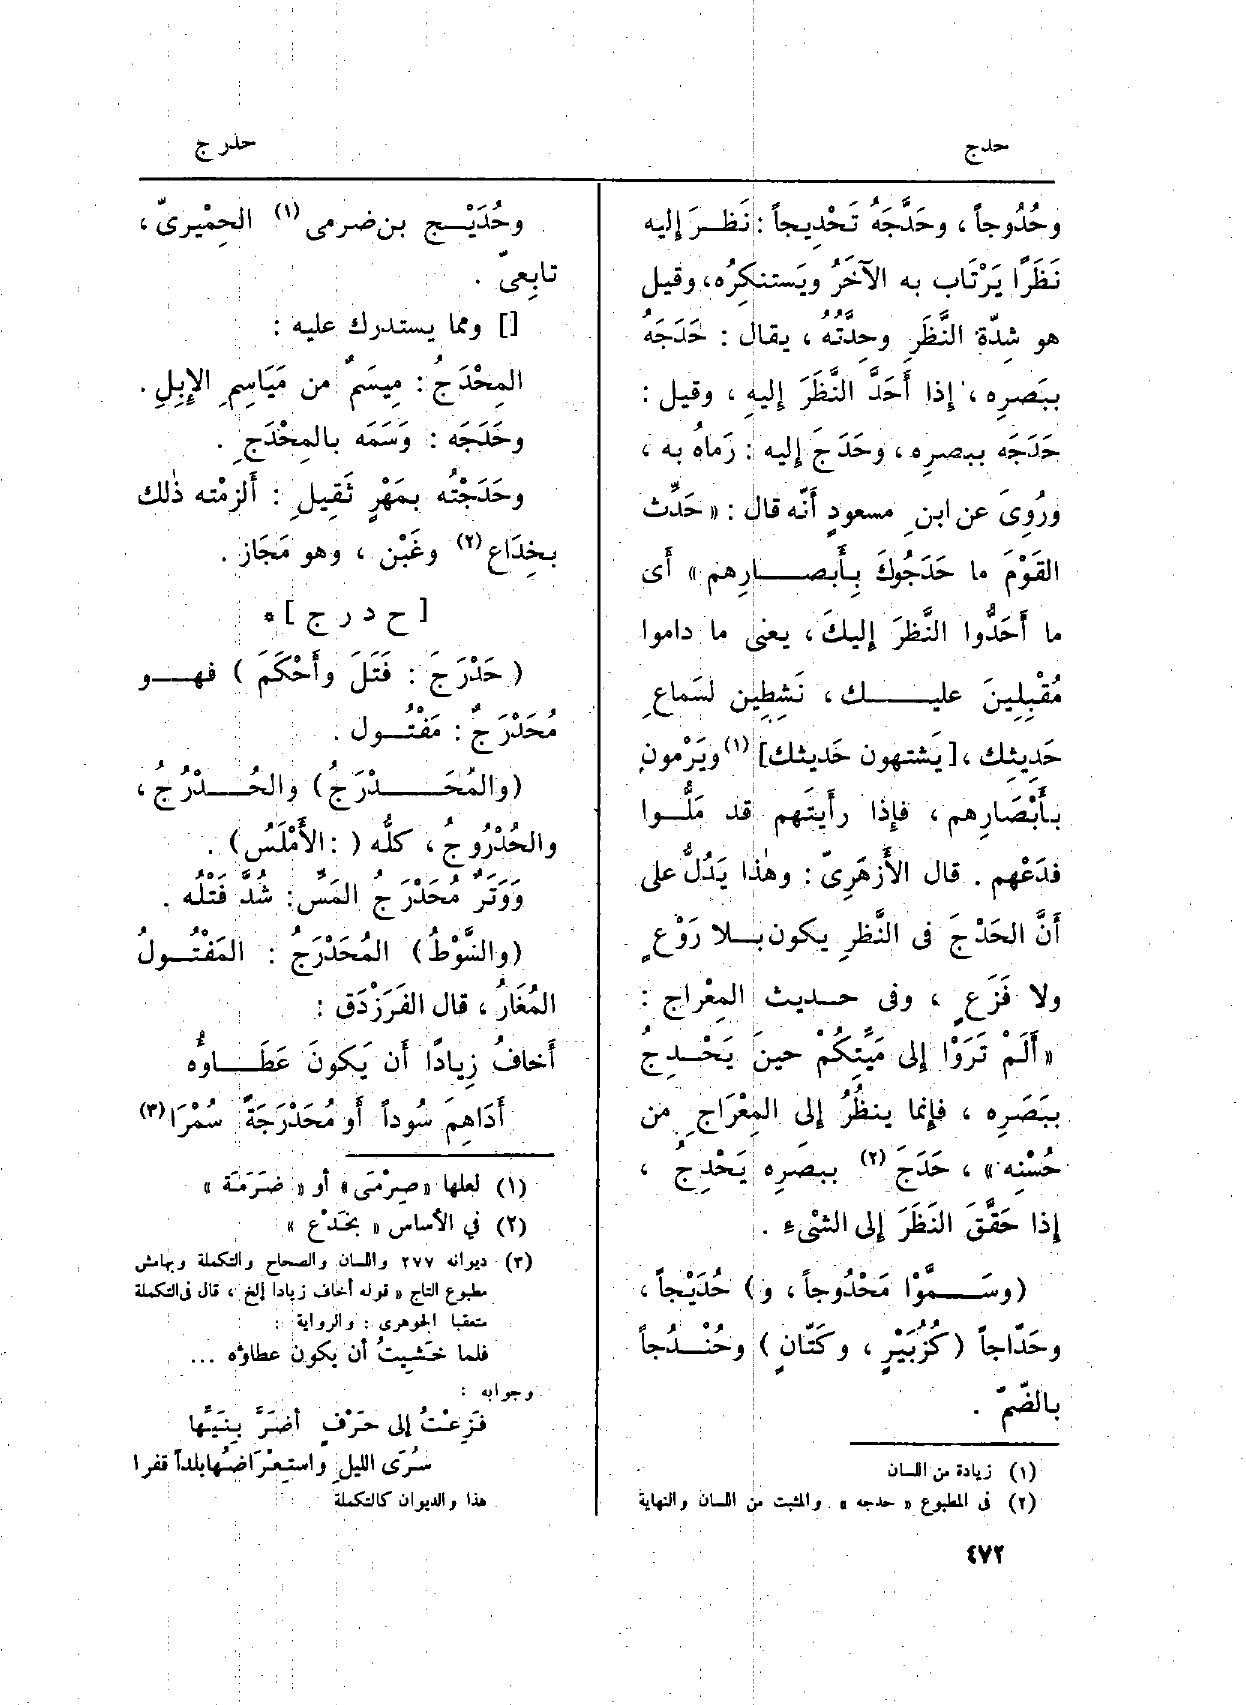 حدج
حدرج
وحُدُوجاً ، وحَدَّجَهُ تَحْدِيجاً : نَظـرَ إليه
نَظَرًا يَرْتَاب به الآخَرُ ويَستنكِرُه، وقيل
هو شِدّة النَّظَرِ وحِدَّتُه ، يقال : حَدَجَهُ
ببَصرِه ، إذا أَحَدَّ النَّظَرَ إليهِ ، وقيل :
حَدَجَه ببصرِه ، وحَدَجَ إليه : رَماهُ به ،
ورُوِىَ عن ابنِ مسعودٍ أَنّه قال : « حَدِّث
القَوْمَ ما حَدَجُوكَ بِأَبصــارِهم » أَى
ما أَحَدُّوا النَّظرَ إِليكَ ، يعنى ما داموا
مُقْبِلِينَ عليـــك ، نَشِطِين لسَماعِ
حَدِيثِك ، [يَشتهون حَديثك] (١) ويَرْمون
بأَبْصَارِهم ، فإذا رأَيتَهم قد مَلُّــوا
فدَعْهم . قال الأَزهَرِىّ : وهٰذا يَدُلُّ على
أَنَّ الحَدْجَ فى النَّظرِ يكون بــلا رَوْعٍ
ولا فَزَعٍ ، وفى حــديث المِعْراج :
« أَلَمْ تَرَوْا إلى مَيِّتِكُمْ حينَ يَحْــدِجُ
ببَصَرِه ، فإنما ينظُرُ إلى المِعْرَاجِ من
حُسْنِه » ، حَدَجَ (٢) ببصَرِه يَحْدِجُ ،
إذا حَقَّقَ النَّظَرَ إلى الشىْءِ .
(وسَــمَّوْا مَحْدُوجاً ، و) حُدَيْجاً ،
وحَدّاجاً (كزُبَيْرٍ ، وكَتّانٍ) وحُنْــدُجاً
بالضّمّ .
(١) زيادة من اللسان
(٢) فى المطبوع « حدجه » . والمثبت من اللسان والنهاية
وحُدَيْــج بن ضرمى (١) الحِمْيرىّ ،
تابِعىّ .
[] ومما يستدرك عليه :
المِحْدَجُ : مِيسَمٌ من مَيَاسِمِ الإِبِلِ .
وحَدَجَه : وَسَمَه بالمِحْدَجِ .
وحَدَجْتُه بمَهْرٍ ثَقِيلِ : أَلزمْته ذٰلك
بخِدَاع (٢) وغَبْن ، وهو مَجَاز .
[ ح د ر ج ] *
( حَدْرَجَ : فَتَلَ وأَحْكَمَ ) فهــو
مُحَدْرَجٌ : مَفْتُــول .
(والمُحَــدْرَجُ) والحُــدْرُجُ ،
والحُدْرُوجُ ، كلُّه ( : الأَمْلَسُ) .
وَوَتَرٌ مُحَدْرَجُ المَسِّ : شُدَّ فَتْلُه .
(والسَّوْطُ) المُحَدْرَجُ : المَفْتُــولُ
المُغَارُ ، قال الفَرَزْدَق :
أَخافُ زِيادًا أَن يَكونَ عَطَــاؤُه
أَدَاهِمَ سُوداً أَو مُحَدْرَجَةً سُمْرَا (٣)
(١) لعلها « صِرْمَى » أو « ضَرَمَة »
(٢) في الأساس « بخَدْع »
(٣) ديوانه ٢٧٧ واللسان والصحاح والتكملة وبهامش
مطبوع التاج « قوله أخاف زيادا إلخ ، قال فى التكملة
متعقبا الجوهرى : والرواية :
فلما خَشيتُ أن يكون عطاؤه ...
وجوابه :
فَزِعْتُ إلى حَرْفٍ أضرَّ بِنَيِّها
سُرَى الليلِ واستِعْرَاضُها بلداً قفرا
هذا والديوان كالتكملة
٤٧٢